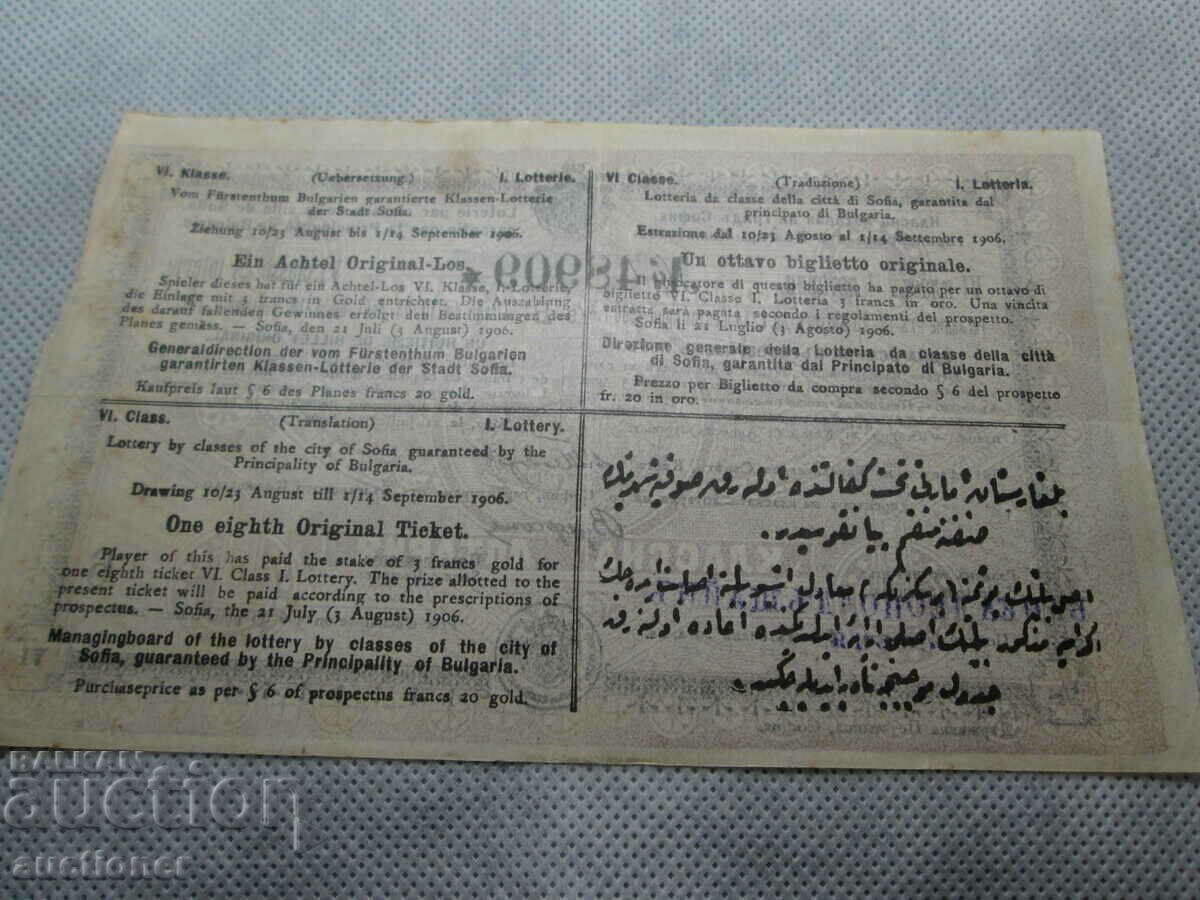 VI. Klasse. (Uebersetzung.) I. Lotterie.
Vom Fürstenthum Bulgarien garantierte Klassen-Lotterie
der Stadt Sofia.
Ziehung 10/23 August bis 1/14 September 1906.
Ein Achtel Original-Los.
Spieler dieses hat für ein Achtel-Los VI. Klasse, I. Lotterie
die Einlage mit 3 francs in Gold entrichtet. Die Auszahlung
des darauf fallenden Gewinnes erfolgt den Bestimmungen des
Planes gemäss. — Sofia, den 21 Juli (3 August) 1906.
Generaldirection der vom Fürstenthum Bulgarien
garantirten Klassen-Lotterie der Stadt Sofia.
Kaufpreis laut § 6 des Planes francs 20 gold.
VI Classe. (Traduzione) I. Lotteria.
Lotteria da classe della città di Sofia, garantita dal
principato di Bulgaria.
Estrazione dal 10/23 Agosto al 1/14 Settembre 1906.
Un ottavo biglietto originale.
Il giuocatore di questo biglietto ha pagato per un ottavo di
biglietto VI. Classe I. Lotteria 3 francs in oro. Una vincita
estratta sarà pagata secondo i regolamenti del prospetto.
Sofia li 21 Luglio (3 Agosto) 1906.
Direzione generale della Lotteria da classe della città
di Sofia, garantita dal Principato di Bulgaria.
Prezzo per Biglietto da compra secondo § 6 del prospetto
fr. 20 in oro.
48909
VI. Class. (Translation) I. Lottery.
Lottery by classes of the city of Sofia guaranteed by the
Principality of Bulgaria.
Drawing 10/23 August till 1/14 September 1906.
One eighth Original Ticket.
Player of this has paid the stake of 3 francs gold for
one eighth ticket VI. Class I. Lottery. The prize allotted to the
present ticket will be paid according to the prescriptions of
prospectus. — Sofia, the 21 July (3 August) 1906.
Managingboard of the lottery by classes of the city of
Sofia, guaranteed by the Principality of Bulgaria.
Purchaseprice as per § 6 of prospectus francs 20 gold.
بلغارستان امارتى تحت كفالتنده اوله رق صوفيه شهرينك
BALKAN
auction
auctioner